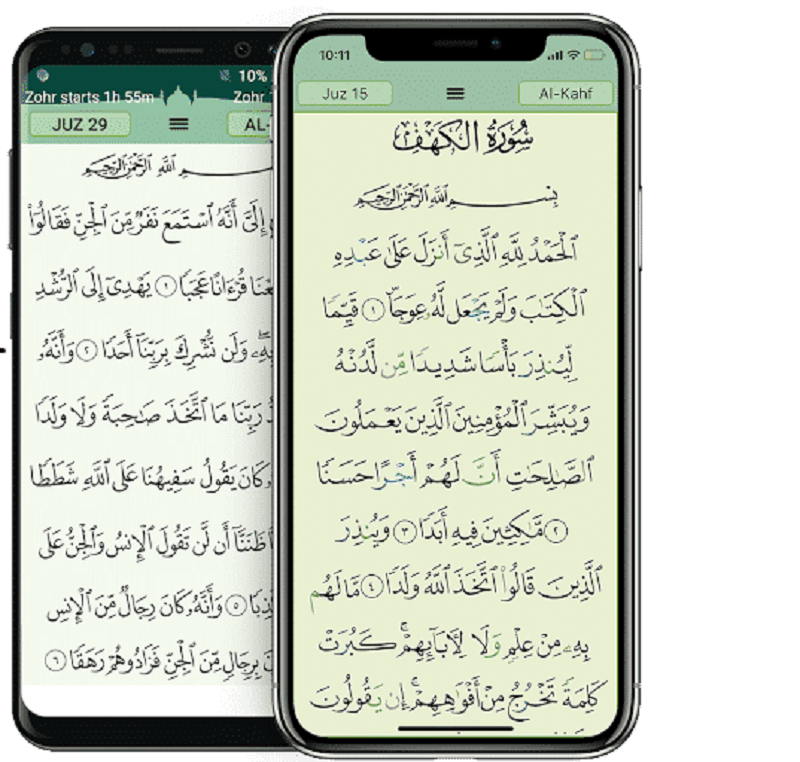 10%
Zohr starts 1h 55m Zohr
JUZ 29 AL-
ٱللَّهِ ٱلرَّحْمَٰنِ ٱلرَّحِيمِ
إِلَىَّ أَنَّهُ ٱسْتَمَعَ نَفَرٌ مِّنَ ٱلْجِنِّ فَقَالُوٓا۟
قُرْءَانًا عَجَبًا ١ يَهْدِىٓ إِلَى ٱلرُّشْدِ
وَلَن نُّشْرِكَ بِرَبِّنَآ أَحَدًا ٢ وَأَنَّهُۥ
رَبِّنَا مَا ٱتَّخَذَ صَٰحِبَةً وَلَا وَلَدًا
كَانَ يَقُولُ سَفِيهُنَا عَلَى ٱللَّهِ شَطَطًا
ظَنَنَّآ أَن لَّن تَقُولَ ٱلْإِنسُ وَٱلْجِنُّ عَلَى
٥ وَأَنَّهُۥ كَانَ رِجَالٌ مِّنَ ٱلْإِنسِ
بِرِجَالٍ مِّنَ ٱلْجِنِّ فَزَادُوهُمْ رَهَقًا ٦
10:11
Juz 15 Al-Kahf
سُورَةُ الكَهْفِ
بِسْمِ ٱللَّهِ ٱلرَّحْمَٰنِ ٱلرَّحِيمِ
ٱلْحَمْدُ لِلَّهِ ٱلَّذِىٓ أَنزَلَ عَلَىٰ عَبْدِهِ
ٱلْكِتَٰبَ وَلَمْ يَجْعَل لَّهُۥ عِوَجَا ١ قَيِّمًا
لِّيُنذِرَ بَأْسًا شَدِيدًا مِّن لَّدُنْهُ
وَيُبَشِّرَ ٱلْمُؤْمِنِينَ ٱلَّذِينَ يَعْمَلُونَ
ٱلصَّٰلِحَٰتِ أَنَّ لَهُمْ أَجْرًا حَسَنًا
٢ مَّٰكِثِينَ فِيهِ أَبَدًا ٣ وَيُنذِرَ
ٱلَّذِينَ قَالُوا۟ ٱتَّخَذَ ٱللَّهُ وَلَدًا ٤ مَّا لَهُم
بِهِۦ مِنْ عِلْمٍ وَلَا لِأٓبَآئِهِمْ ۚ كَبُرَتْ
كَلِمَةً تَخْرُجُ مِنْ أَفْوَٰهِهِمْ ۚ إِن يَقُولُونَ